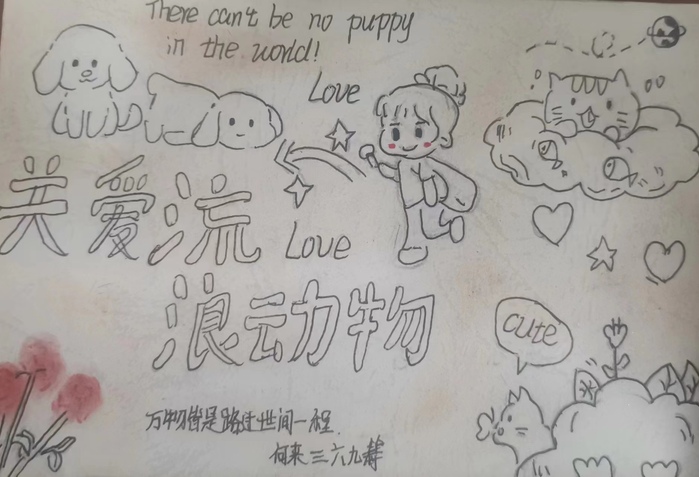 There can't be no puppy
in the world!
Love
关爱流
Love
浪动物
cute
万物皆是路过世间一程
何来三六九等